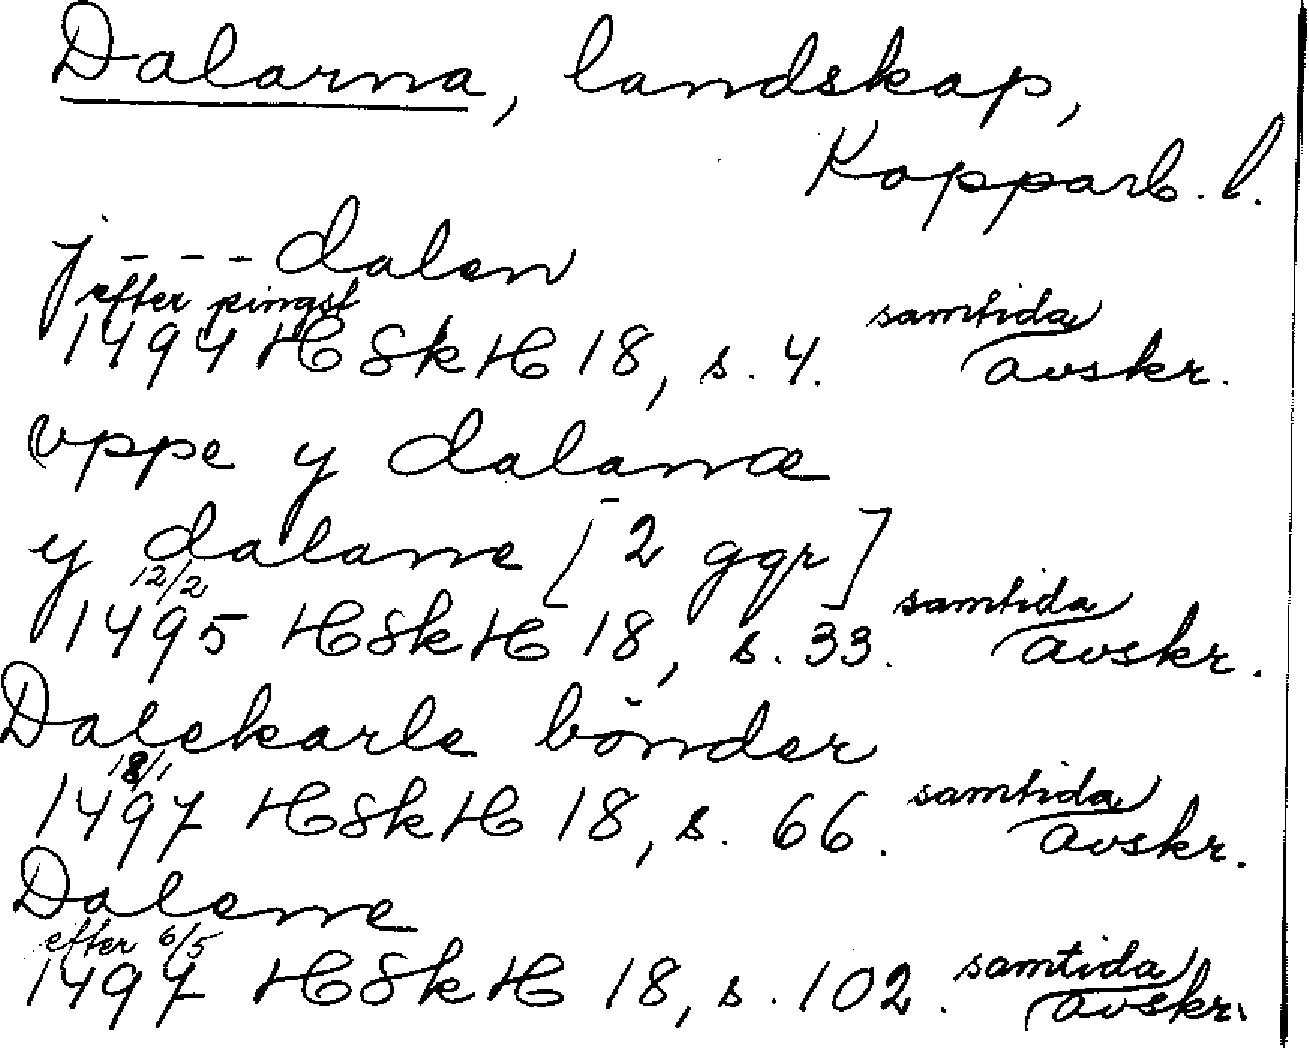 Dalarna, landskap,
Kopparb. l.
j - - - - dalen
efter pingst
1494 HSkH 18, s. 4. samtida avskr.
vppe y dalanæ
y dalane [2 ggr]
12/2
1495 HSkH 18, s. 33. samtida avskr.
Dalekarle bönder
18/1
1497 HSkH 18, s. 66. samtida avskr.
Dalene
efter 6/5
1497 HSkH 18, s. 102. samtida avskr.